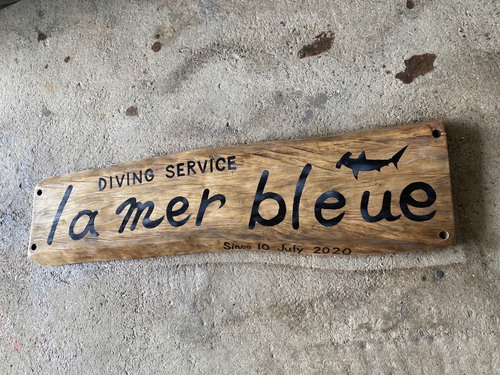 DIVING SERVICE
la mer bleue
Since 10 July 2020